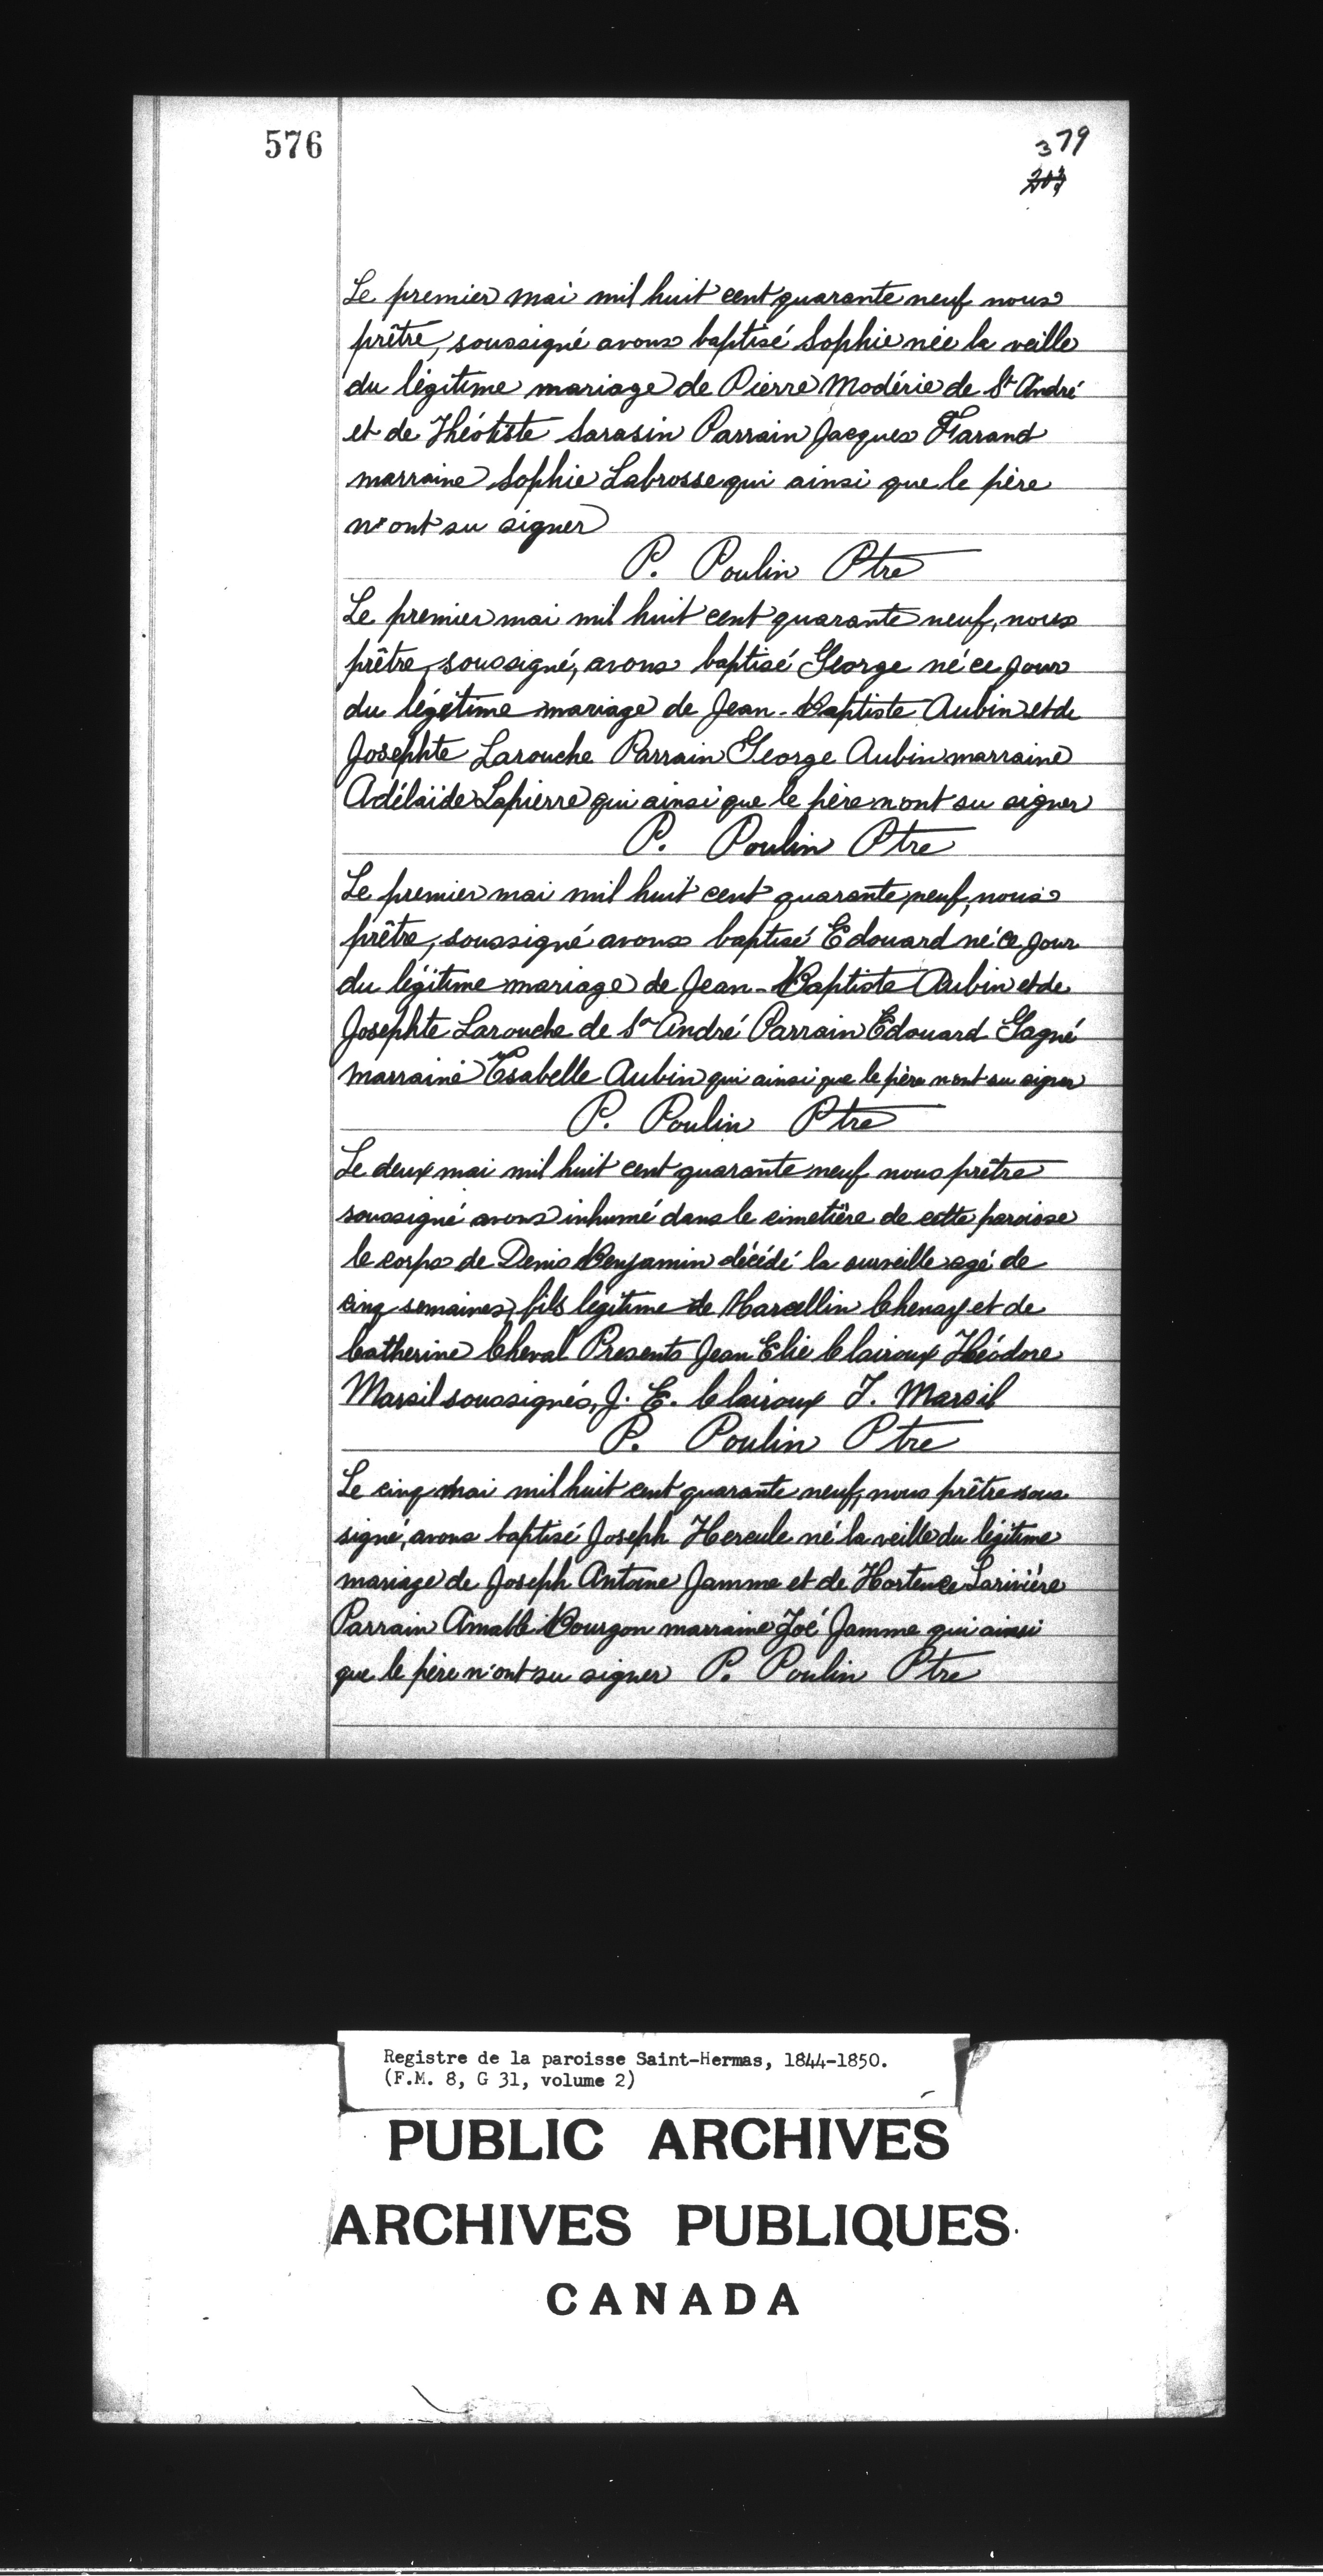 576
379
Le premier mai mil huit cent quarante neuf nous
prêtre, soussigné avons baptisé Sophie née la veille
du légitime mariage de Pierre Modérie de St André
et de Théotiste Sarasin Parrain Jacques Farand
marraine Sophie Labrosse qui ainsi que le père
n'ont su signer
P. Poulin Ptre
Le premier mai mil huit cent quarante neuf, nous
prêtre, soussigné, avons baptisé George né ce jour
du légitime mariage de Jean-Baptiste Aubin et de
Josephte Larouche Parrain George Aubin marraine
Adélaïde Lapierre qui ainsi que le père n'ont su signer
P. Poulin Ptre
Le premier mai mil huit cent quarante neuf, nous
prêtre, soussigné avons baptisé Edouard né ce jour
du légitime mariage de Jean-Baptiste Aubin et de
Josephte Larouche de St André Parrain Edouard Gagné
marraine Esabelle Aubin qui ainsi que le père n'ont su signer
P. Poulin Ptre
Le deux mai mil huit cent quarante neuf nous prêtre
soussigné avons inhumé dans le cimetière de cette paroisse
le corps de Denis Benjamin décédé la surveille agé de
cinq semaines, fils légitime de Marcellin Chenay et de
Catherine Cheval Presents Jean Elie Clairoux Théodore
Marsil soussignés, J. E. Clairoux T. Marsil
P. Poulin Ptre
Le cinq mai mil huit cent quarante neuf, nous prêtre sous
signé, avons baptisé Joseph Hercule né la veille du légitime
mariage de Joseph Antoine Jamme et de Hortence Larivière
Parrain Amable Bourgon marraine Zoé Jamme qui ainsi
que le père n'ont su signer P. Poulin Ptre
Registre de la paroisse Saint-Hermas, 1844-1850.
(F.M. 8, G 31, volume 2)
PUBLIC ARCHIVES
ARCHIVES PUBLIQUES
CANADA